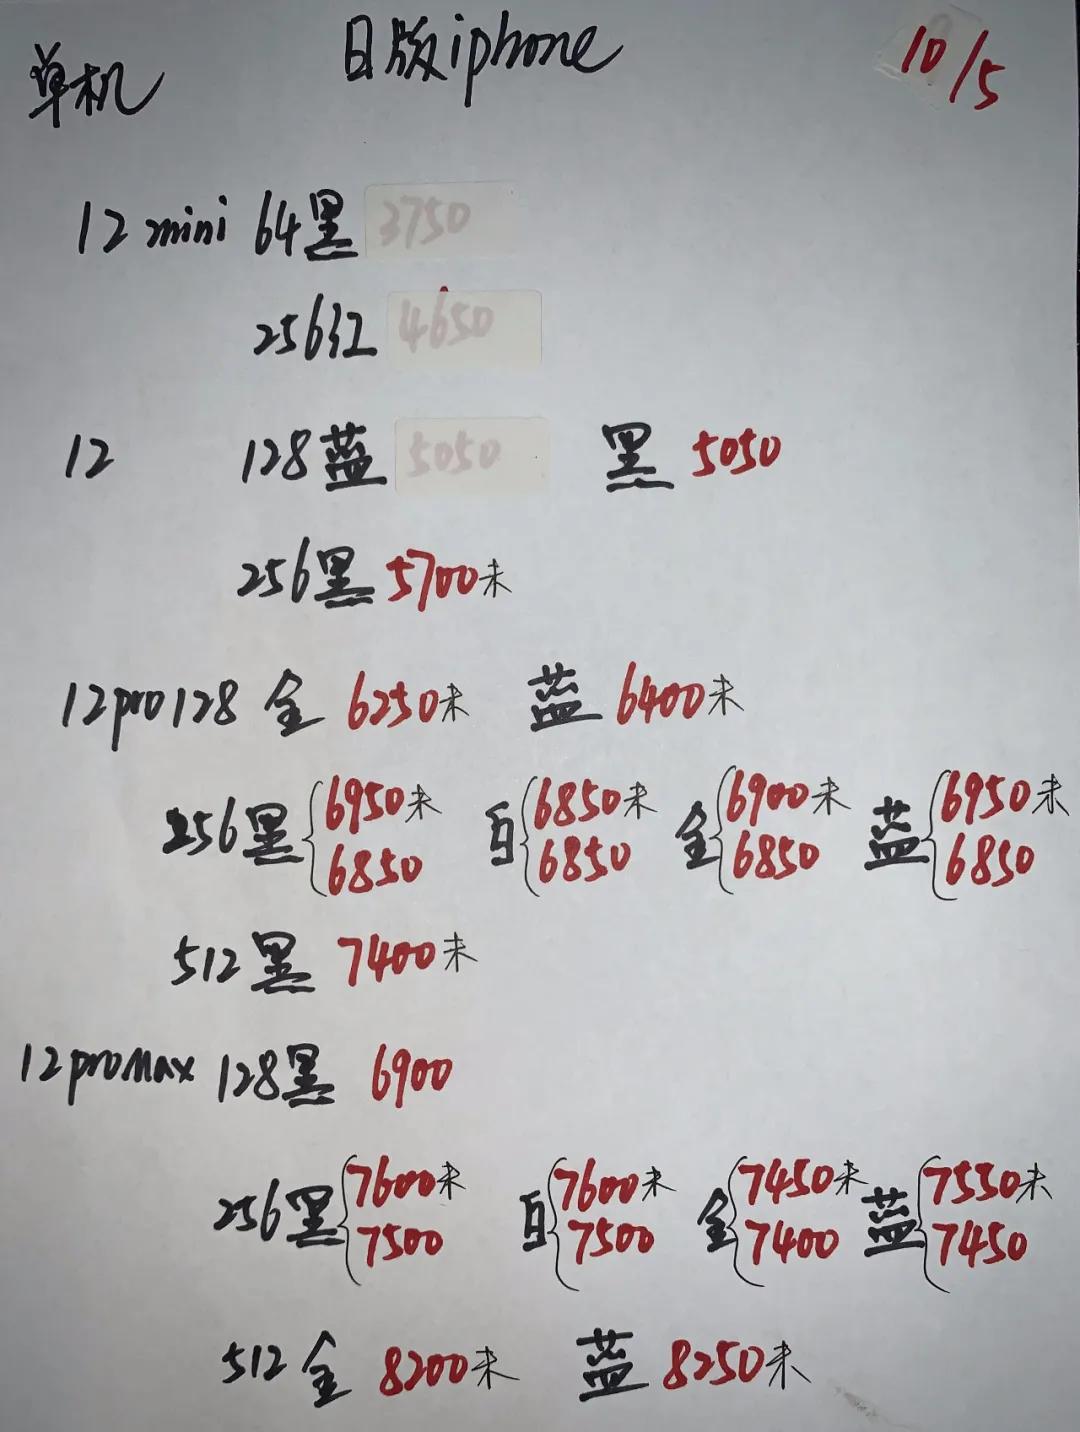 单机 日版iphone 10/5
12 mini 64黑 3750
256红 4650
12 128蓝 5050 黑 5050
256黑 5700未
12pro 128 金 6250未 蓝 6400未
256黑 6950未 6850 白 6850未 6850 金 6900未 6850 蓝 6950未 6850
512黑 7400未
12proMax 128黑 6900
256黑 7600未 7500 白 7600未 7500 金 7450未 7400 蓝 7550未 7450
512金 8200未 蓝 8250未